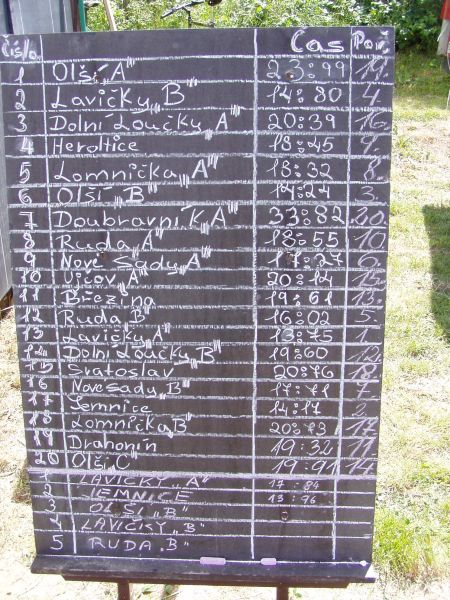 Číslo Čas Poř.
1 Olší „A" 23:99 19.
2 Lavičky „B" 14:80 4
3 Dolní Loučky „A" 20:39 16.
4 Heroltice 18:45 9.
5 Lomnička „A" 18:32 8.
6 Olší „B" 14:24 3.
7 Doubravník A" 33:82 20.
8 Ruda „A" 18:55 10
9 Nové Sady „A" 6.
10 "A" 20:14 15.
11 Březina 19:61 13.
12 Ruda B" 16:02 5.
13 Lavičky „A" 13:75 1.
14 Dolní Loučky „B" 19:60 12.
15 Svatoslav 20:76 18.
16 Nové sady „B" 17:71 7.
17 Jemnice 14:17 2.
18 Lomnička B" 20:73 17
19 Drahonín 19:32 11
20 Olší „C" 19:91 14
1 LAVIČKY „A" 17:84
2 JEMNICE 13:76
3 OLŠÍ „B"
4 LAVIČKY „B"
5 RUDA „B"